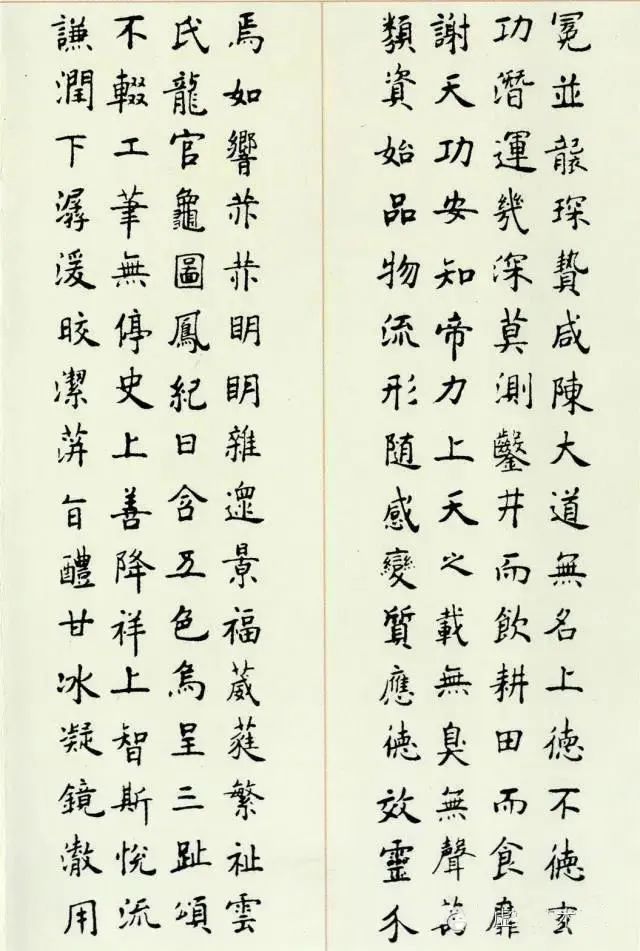 冕並襲琛贄咸陳大道無名上徳不徳玄
功潛運幾深莫測鑿井而飲耕田而食靡
謝天功安知帝力上天之載無臭無聲萬
類資始品物流形随感變質應徳效靈介
焉如響赫赫眀眀雜遝景福葳蕤繁祉雲
氏龍官龜圖鳳紀日含五色烏呈三趾頌
不輟工筆無停史上善降祥上智斯悅流
謙潤下潺湲晈潔蓱旨醴甘冰凝鏡澈用